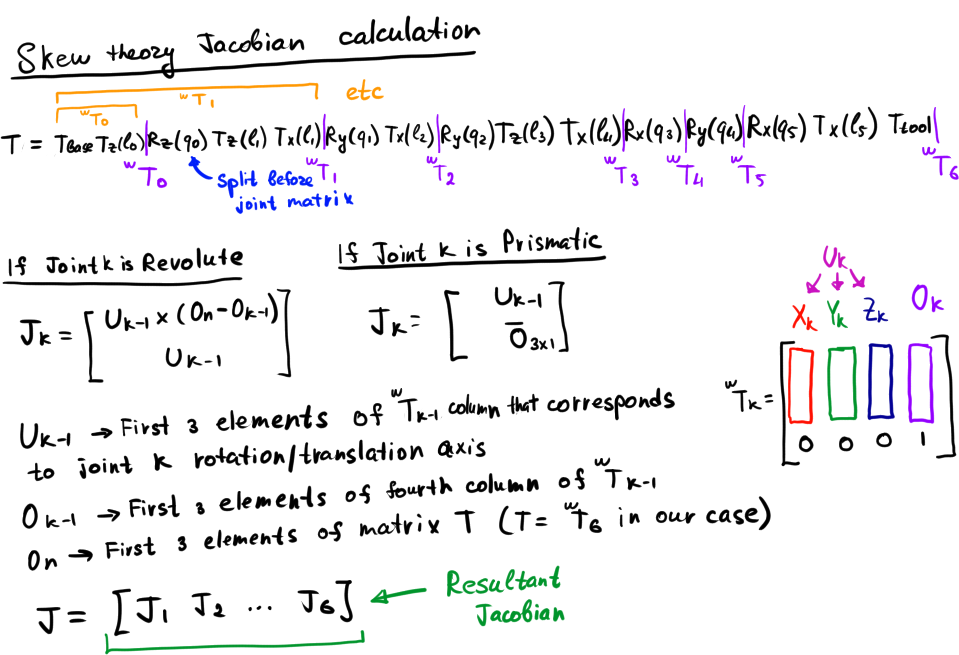 Skew theory Jacobian calculation
wT1 etc
wT0
T = Tbase Tz(l0) | Rz(q0) Tz(l1) Tx(l1) | Ry(q1) Tx(l2) | Ry(q2) Tz(l3) Tx(l4) | Rx(q3) | Ry(q4) | Rx(q5) Tx(l5) Ttool |
wT0 wT1 wT2 wT3 wT4 wT5 wT6
Split before
joint matrix
If Joint k is Revolute
If Joint k is Prismatic
Jk = [ Uk-1 × (On - Ok-1)
Uk-1 ]
Jk = [ Uk-1
Ō3x1 ]
Uk
Xk Yk Zk Ok
wTk =
0 0 0 1
Uk-1 → First 3 elements of wTk-1 column that corresponds
to joint k rotation/translation axis
Ok-1 → First 3 elements of fourth column of wTk-1
On → First 3 elements of matrix T (T = wT6 in our case)
J = [J1 J2 ... J6]
Resultant
Jacobian